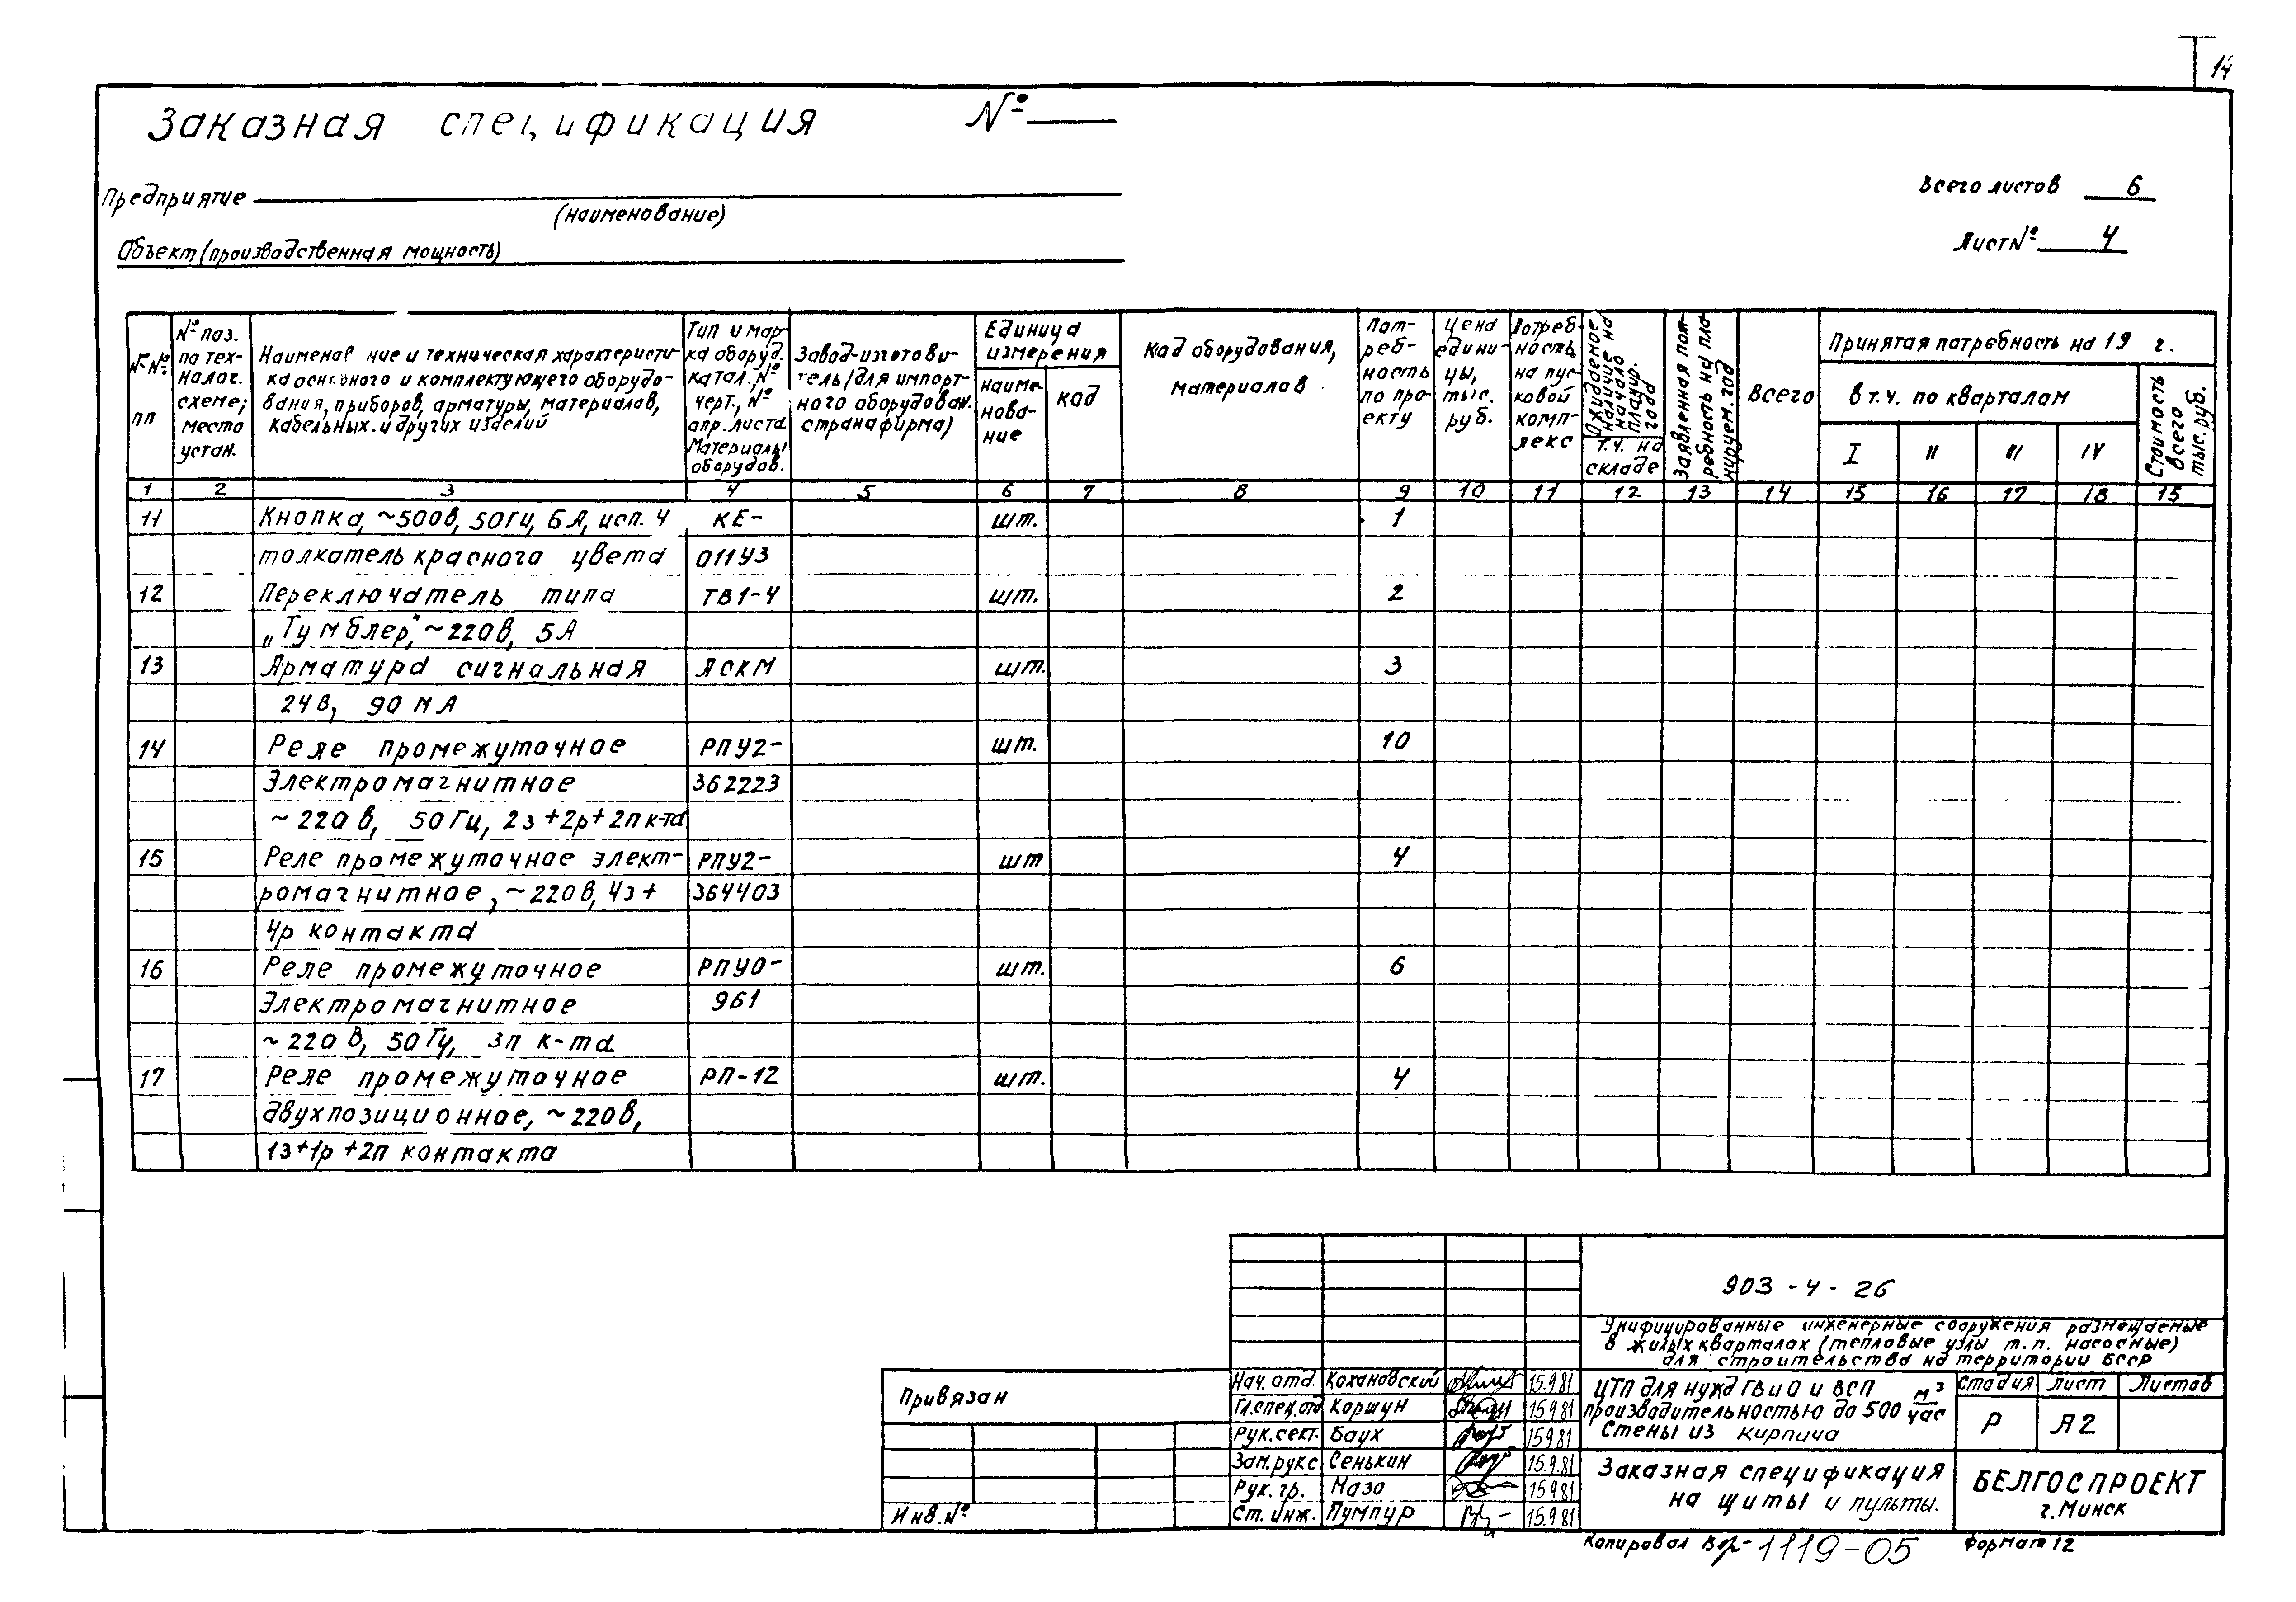 14
Заказная спецификация №
Предприятие
(наименование)
Объект (производственная мощность)
Всего листов 6
Лист № 4
№№ пп
№ поз. по технолог. схеме; место устан.
Наименов ние и техническая характеристи-
ка основного и комплектующего оборудо-
вания, приборов, арматуры, материалов,
кабельных и других изделий
Тип и мар-
ка оборуд.
катал., №
черт., №
опр. листа
Материалы
оборудов.
Завод-изготови-
тель (для импорт-
ного оборудован.
страна фирма)
Единица
измерения
наиме-
нова-
ние
код
Код оборудования,
материалов
Пот-
реб-
ность
по про-
екту
Цена
едини-
цы,
тыс.
руб.
Потреб-
ность
на пус-
ковой
комп-
лекс
Ожидаемое
наличие на
начало
планир.
года
т.ч. на
складе
Заявленная пот-
ребность на пла-
нируем. год
Всего
Принятая потребность на 19 г.
в т.ч. по кварталам
I II III IV
Стоимость
всего
тыс. руб.
1 2 3 4 5 6 7 8 9 10 11 12 13 14 15 16 17 18 15
11 Кнопка, ~500в, 50Гц, 6А, исп. 4 КЕ- шт. 1
толкатель красного цвета 011У3
12 Переключатель типа ТВ1-4 шт. 2
„Тумблер", ~220в, 5А
13 Арматура сигнальная АСКМ шт. 3
24В, 90мА
14 Реле промежуточное РПУ2- шт. 10
Электромагнитное 362223
~220в, 50Гц, 2з+2р+2п к-та
15 Реле промежуточное элект- РПУ2- шт 4
ромагнитное, ~220в, 4з+ 364403
4р контакта
16 Реле промежуточное РПУ0- шт. 6
Электромагнитное 961
~220В, 50Гц, 3п к-та
17 Реле промежуточное РП-12 шт. 4
двухпозиционное, ~220в,
1з+1р+2п контакта
903-4-26
Унифицированные инженерные сооружения размещаемые
в жилых кварталах (тепловые узлы т.п. насосные)
для строительства на территории БССР
Привязан
Инв. №
Нач. отд. Кохановский 15.9.81
Гл.спец.отд Коршун 15.9.81
Рук. сект. Баух 15.9.81
Зам.рук с Сенькин 15.9.81
Рук. гр. Мазо 15.9.81
Ст. инж. Пумпур 15.9.81
ЦТП для нужд ГВ и О и ВСП
производительностью до 500 м³/час
Стены из кирпича
Стадия Лист Листов
Р А2
Заказная спецификация
на щиты и пульты.
БЕЛГОСПРОЕКТ
г. Минск
Копировал 1119-05 Формат 12